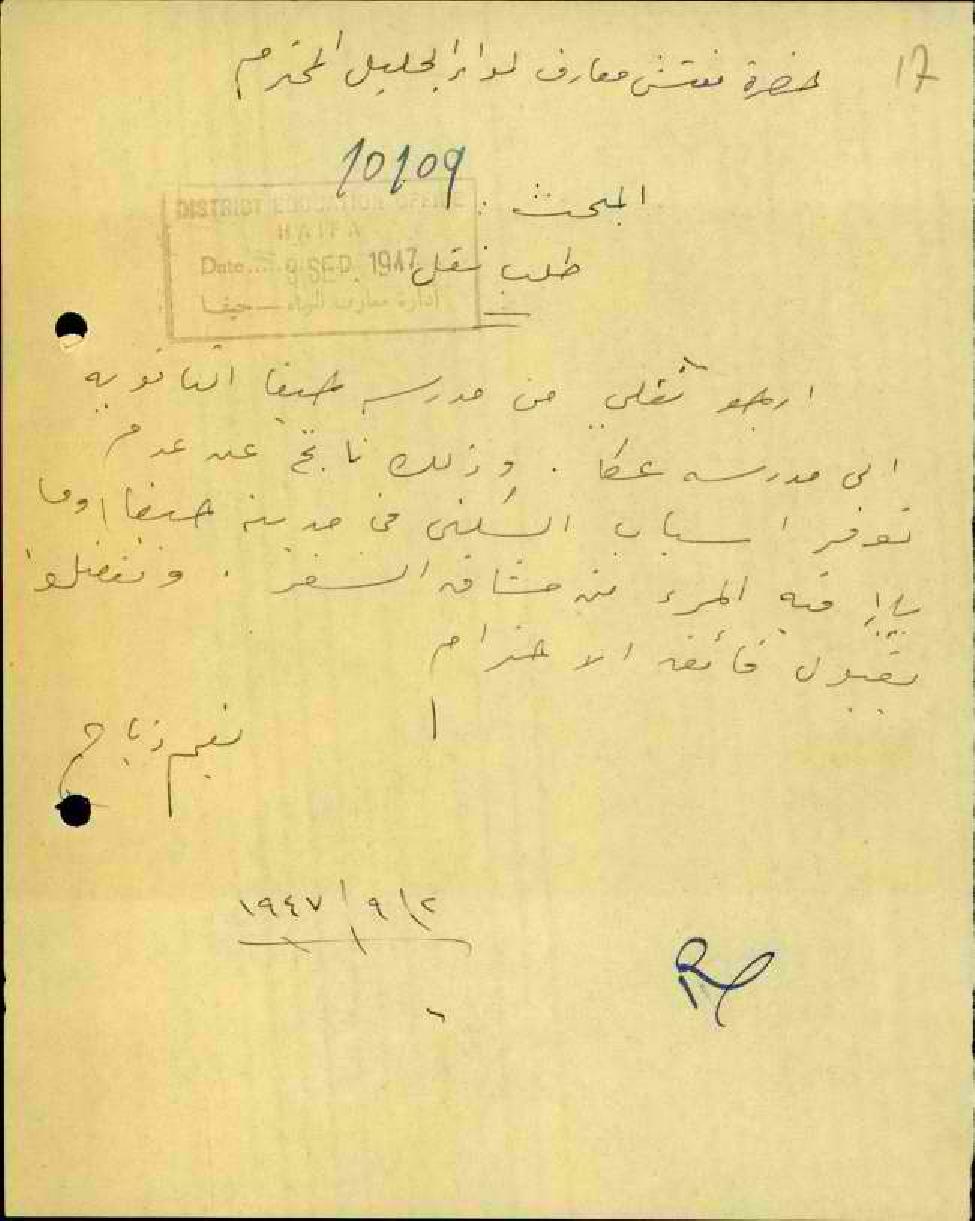 17
حضرة مفتش معارف لواء الجليل المحترم
10109
المبحث :
DISTRICT EDUCATION OFFICE
HAIFA
Date.... 9 SEP. 1947
ادارة معارف اللواء — حيفا
طلب نقل
ارجو نقلي من مدرسه حيفا الثانويه
الى مدرسه عكا . وذلك ناتج عن عدم
توفر اسباب السكنى في مدينة حيفا وما
يلاقيه المرء من مشاق السفر . وتفضلوا
بقبول فائق الاحترام
نعيم
١٩٤٧/٩/٢